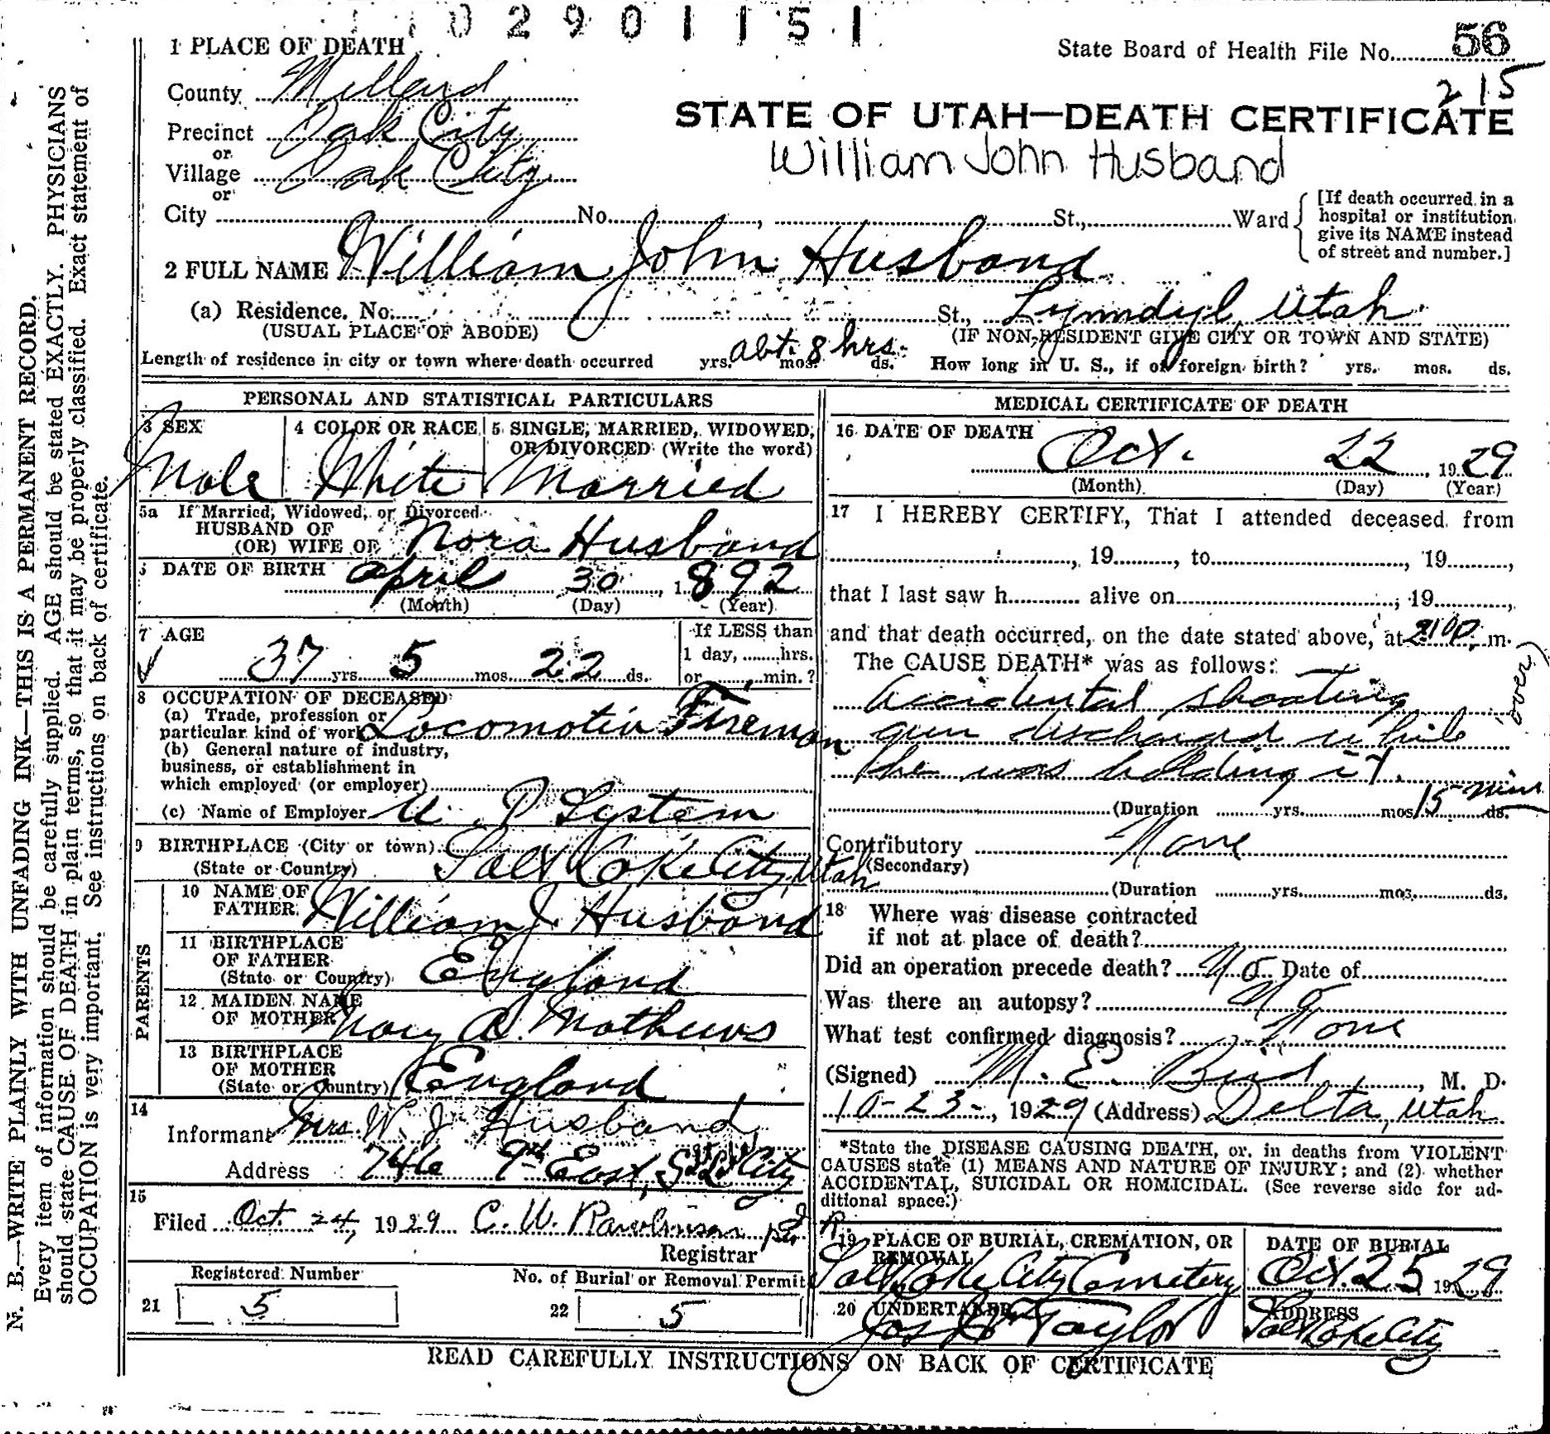 02901151
1 PLACE OF DEATH
State Board of Health File No. 56
215
County Millard
STATE OF UTAH—DEATH CERTIFICATE
Precinct Oak City
William John Husband
or
Village Oak City
or
City No. , St., Ward
[If death occurred in a
hospital or institution
give its NAME instead
of street and number.]
2 FULL NAME William John Husband
(a) Residence. No. St., Lynndyl, Utah
(USUAL PLACE OF ABODE) (IF NON-RESIDENT GIVE CITY OR TOWN AND STATE)
Length of residence in city or town where death occurred yrs. mos. ds. abt. 8 hrs. How long in U. S., if of foreign birth? yrs. mos. ds.
PERSONAL AND STATISTICAL PARTICULARS
3 SEX 4 COLOR OR RACE 5 SINGLE, MARRIED, WIDOWED,
OR DIVORCED (Write the word)
Male White Married
5a If Married, Widowed, or Divorced
HUSBAND OF
(OR) WIFE OF Nora Husband
6 DATE OF BIRTH April 30, 1892
(Month) (Day) (Year)
7 AGE If LESS than
1 day, hrs.
37 yrs. 5 mos. 22 ds. or min.?
8 OCCUPATION OF DECEASED
(a) Trade, profession or
particular kind of work Locomotiv Fireman
(b) General nature of industry,
business, or establishment in
which employed (or employer)
(c) Name of Employer U. P System
9 BIRTHPLACE (City or town) Salt Lake City, Utah
(State or Country)
PARENTS
10 NAME OF
FATHER William J Husband
11 BIRTHPLACE
OF FATHER
(State or Country) England
12 MAIDEN NAME
OF MOTHER Mary A. Mathews
13 BIRTHPLACE
OF MOTHER
(State or Country) England
14
Informant Mrs. W. J. Husband,
Address 746 9th East, S. L. City
15
Filed Oct. 24, 1929 C. W. Rawlinson
Registrar
Registered Number No. of Burial or Removal Permit
21 5 22 5
MEDICAL CERTIFICATE OF DEATH
16 DATE OF DEATH
Oct. 22, 1929
(Month) (Day) (Year)
17 I HEREBY CERTIFY, That I attended deceased from
, 19 , to , 19 ,
that I last saw h alive on , 19 ,
and that death occurred, on the date stated above, at m.
The CAUSE DEATH* was as follows:
accidental shooting
gun discharged while
he was holding it.
(over)
(Duration yrs. mos. 15 mins ds.
Contributory None
(Secondary)
(Duration yrs. mos. ds.
18 Where was disease contracted
if not at place of death?
Did an operation precede death? No Date of
Was there an autopsy? No
What test confirmed diagnosis? None
(Signed) M. E. Bird, M. D.
10-23-, 1929 (Address) Delta, Utah
*State the DISEASE CAUSING DEATH, or, in deaths from VIOLENT
CAUSES state (1) MEANS AND NATURE OF INJURY; and (2) whether
ACCIDENTAL, SUICIDAL OR HOMICIDAL. (See reverse side for ad-
ditional space.)
19 PLACE OF BURIAL, CREMATION, OR
REMOVAL
Salt Lake City Cemetery
DATE OF BURIAL
Oct. 25 1929
20 UNDERTAKER
Jos. Taylor
ADDRESS
Salt Lake City
READ CAREFULLY INSTRUCTIONS ON BACK OF CERTIFICATE
N. B.—WRITE PLAINLY WITH UNFADING INK—THIS IS A PERMANENT RECORD.
Every item of information should be carefully supplied. AGE should be stated EXACTLY. PHYSICIANS
should state CAUSE OF DEATH in plain terms, so that it may be properly classified. Exact statement of
OCCUPATION is very important. See instructions on back of certificate.